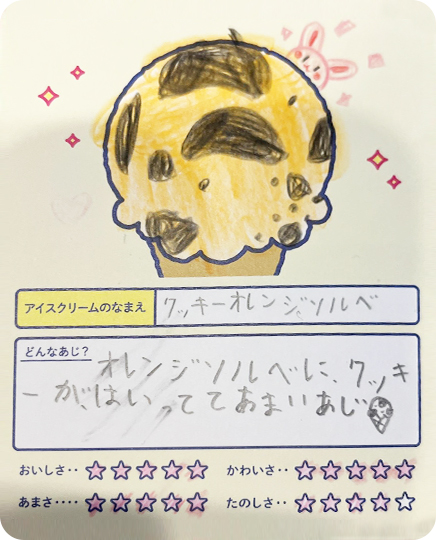 アイスクリームのなまえ
クッキーオレンジソルベ
どんなあじ?
オレンジソルベに、クッキ
ーが、はいっててあまいあじ
おいしさ‥ ☆☆☆☆☆ かわいさ‥ ☆☆☆☆☆
あまさ‥‥ ☆☆☆☆☆ たのしさ‥ ☆☆☆☆☆